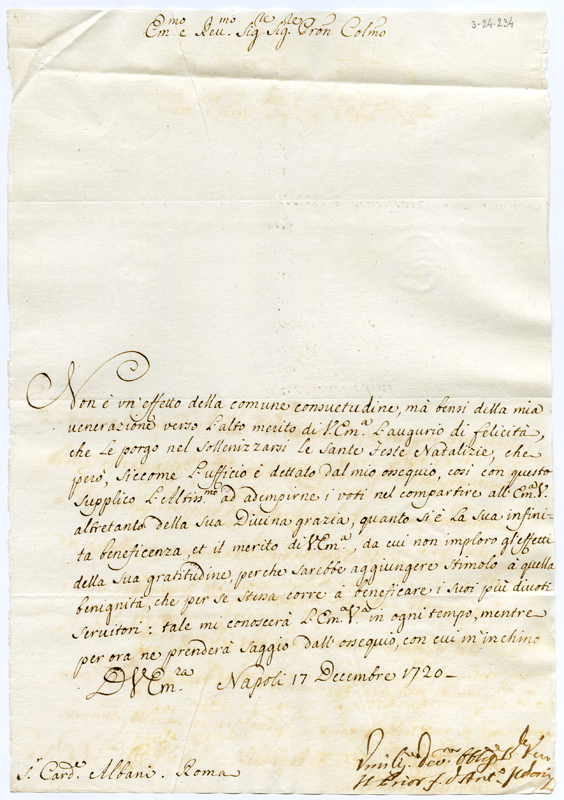 3-24-234
Em.mo e Reu.mo Sig.re Sig.re Pron Colmo
Non è vn'effetto della comune consuetudine, mà bensi della mia
uenerazione verso l'alto merito di V.Em.a l'augurio di felicità,
che le porgo nel sollenizzarsi le Sante Feste Natalizie, che
però, siccome l'ufficio è dettato dal mio ossequio, così con questo
supplico l'Altiss.mo ad adempirne i voti nel compartire all'Em.a V.
altretanto della Sua Divina grazia, quanto si è la sua infini-
ta beneficenza, et il merito di V.Em.a, da cui non imploro gl'effetti
della sua gratitudine, perche sarebbe aggiungere stimolo à quella
benignità, che per se stessa corre à beneficare i suoi più diuoti
seruitori: tale mi conoscerà l'Em.a V.a in ogni tempo, mentre
per ora ne prenderà saggio dall'ossequio, con cui m'inchino
D V Em.za Napoli 17 Decembre 1720 -
Vmiliss.o Dev.mo
S.r Card.e Albani. Roma
Il Prior f. d'Ant.o